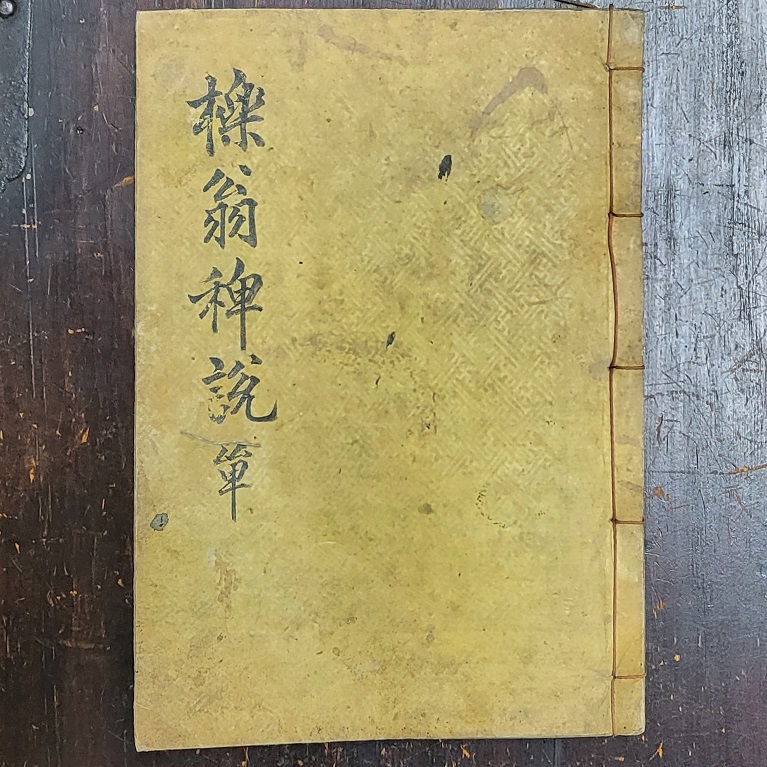 櫟翁稗說 單